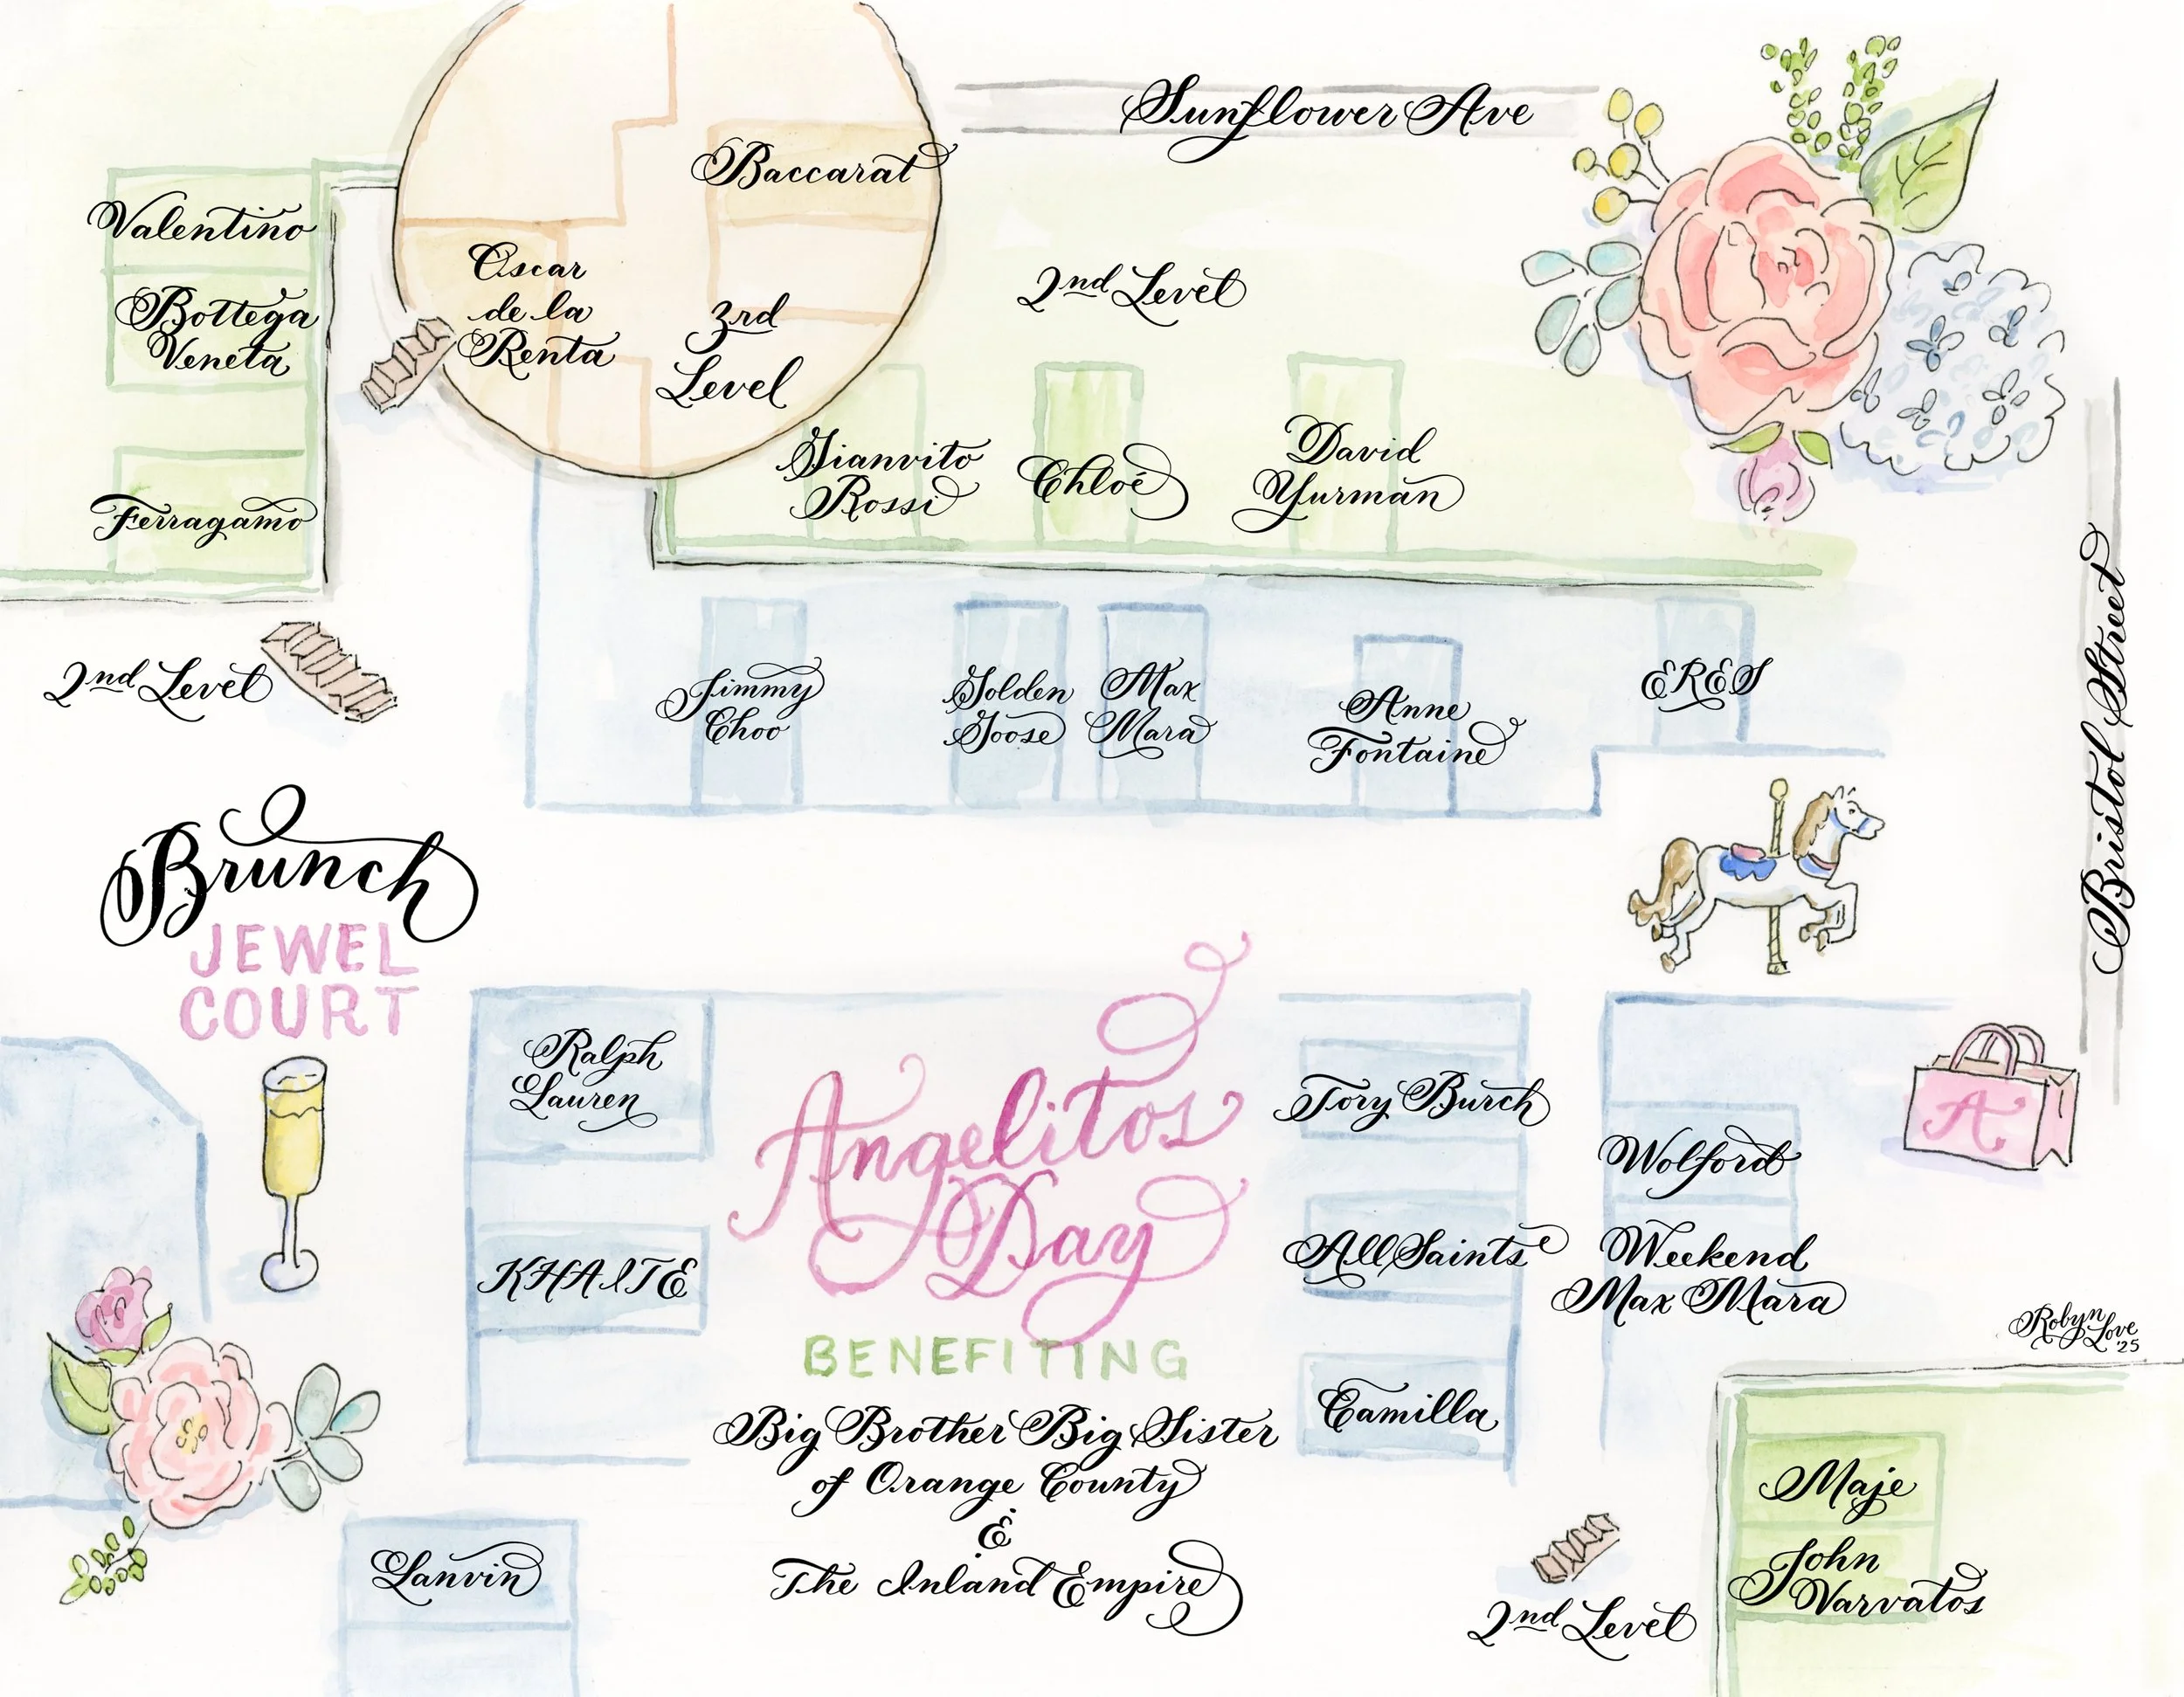 Sunflower Ave
Baccarat
Valentino
Bottega
Veneta
Oscar
de la
Renta
3rd
Level
2nd Level
Ferragamo
Gianvito
Rossi
Chloé
David
Yurman
Bristol Street
2nd Level
Jimmy
Choo
Golden
Goose
Max
Mara
Anne
Fontaine
ERES
Brunch
JEWEL
COURT
Ralph
Lauren
KHAITE
Angelitos
Day
BENEFITING
Big Brother Big Sister
of Orange County
&
The Inland Empire
Tory Burch
AllSaints
Camilla
Wolford
Weekend
Max Mara
A
Robyn
Love
'25
Lanvin
2nd Level
Maje
John
Varvatos